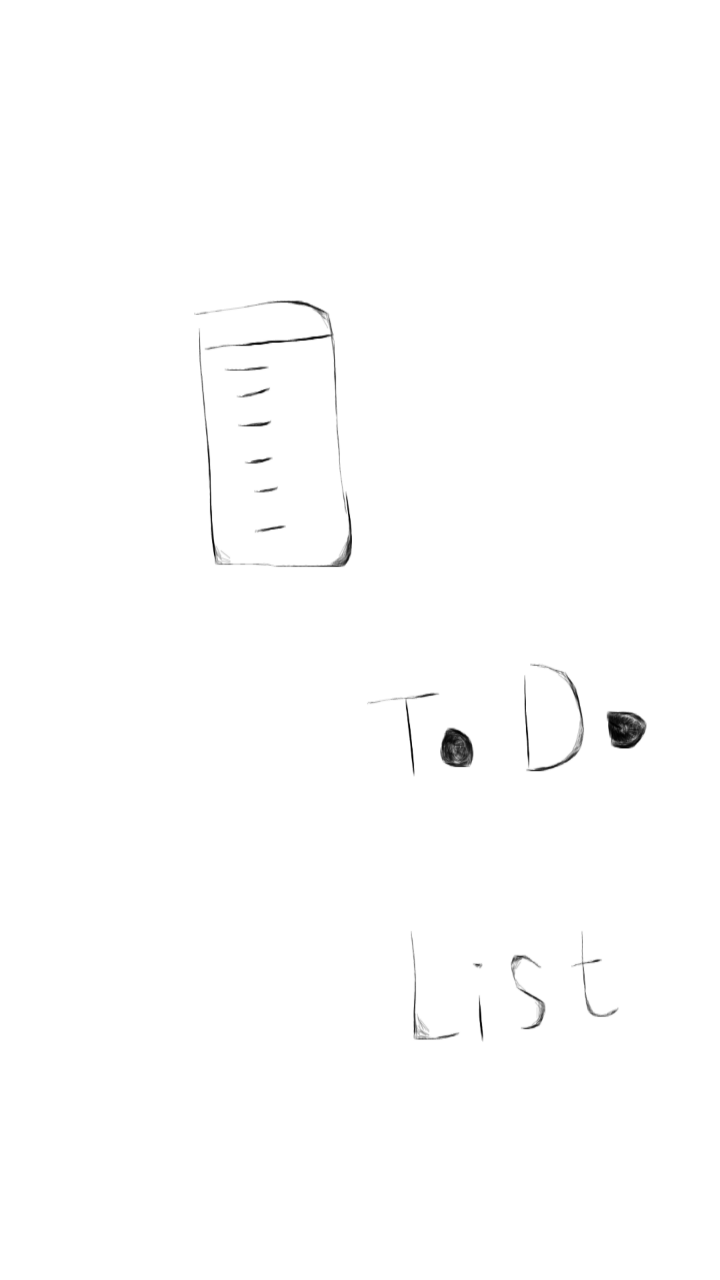 To Do
List